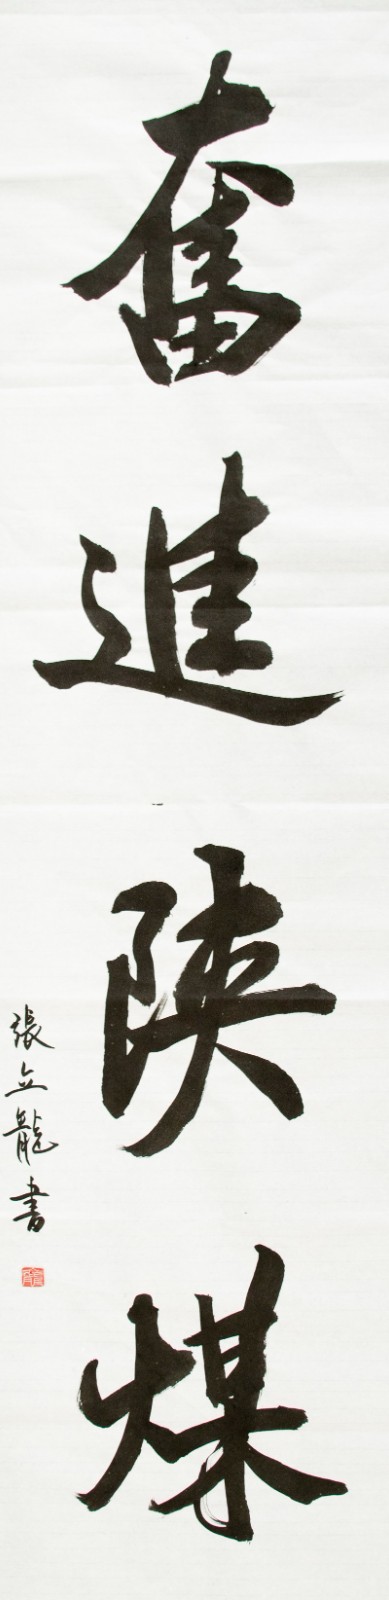 奮進陝煤
張立龍書